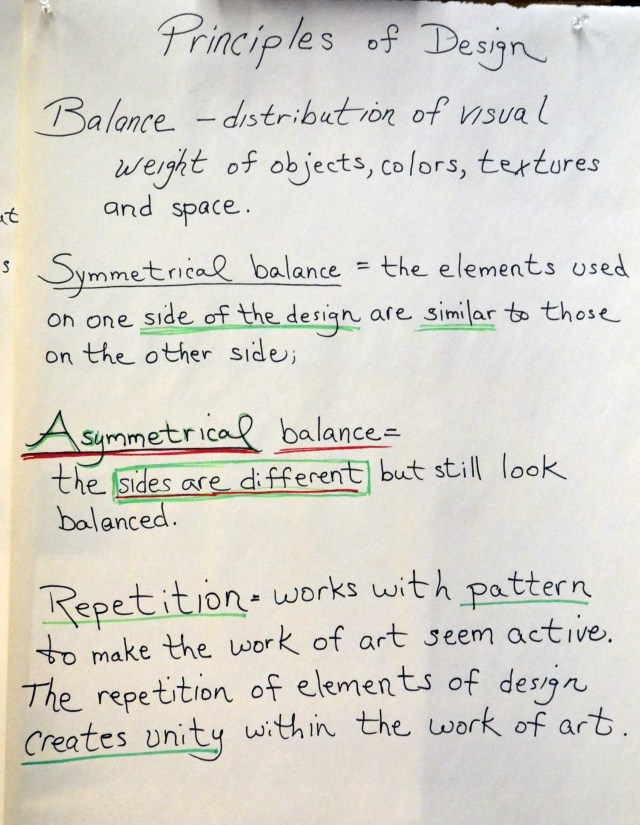 Principles of Design
Balance - distribution of visual
weight of objects, colors, textures
and space.
Symmetrical balance = the elements used
on one side of the design are similar to those
on the other side;
Asymmetrical balance=
the sides are different but still look
balanced.
Repetition = works with pattern
to make the work of art seem active.
The repetition of elements of design
creates unity within the work of art.